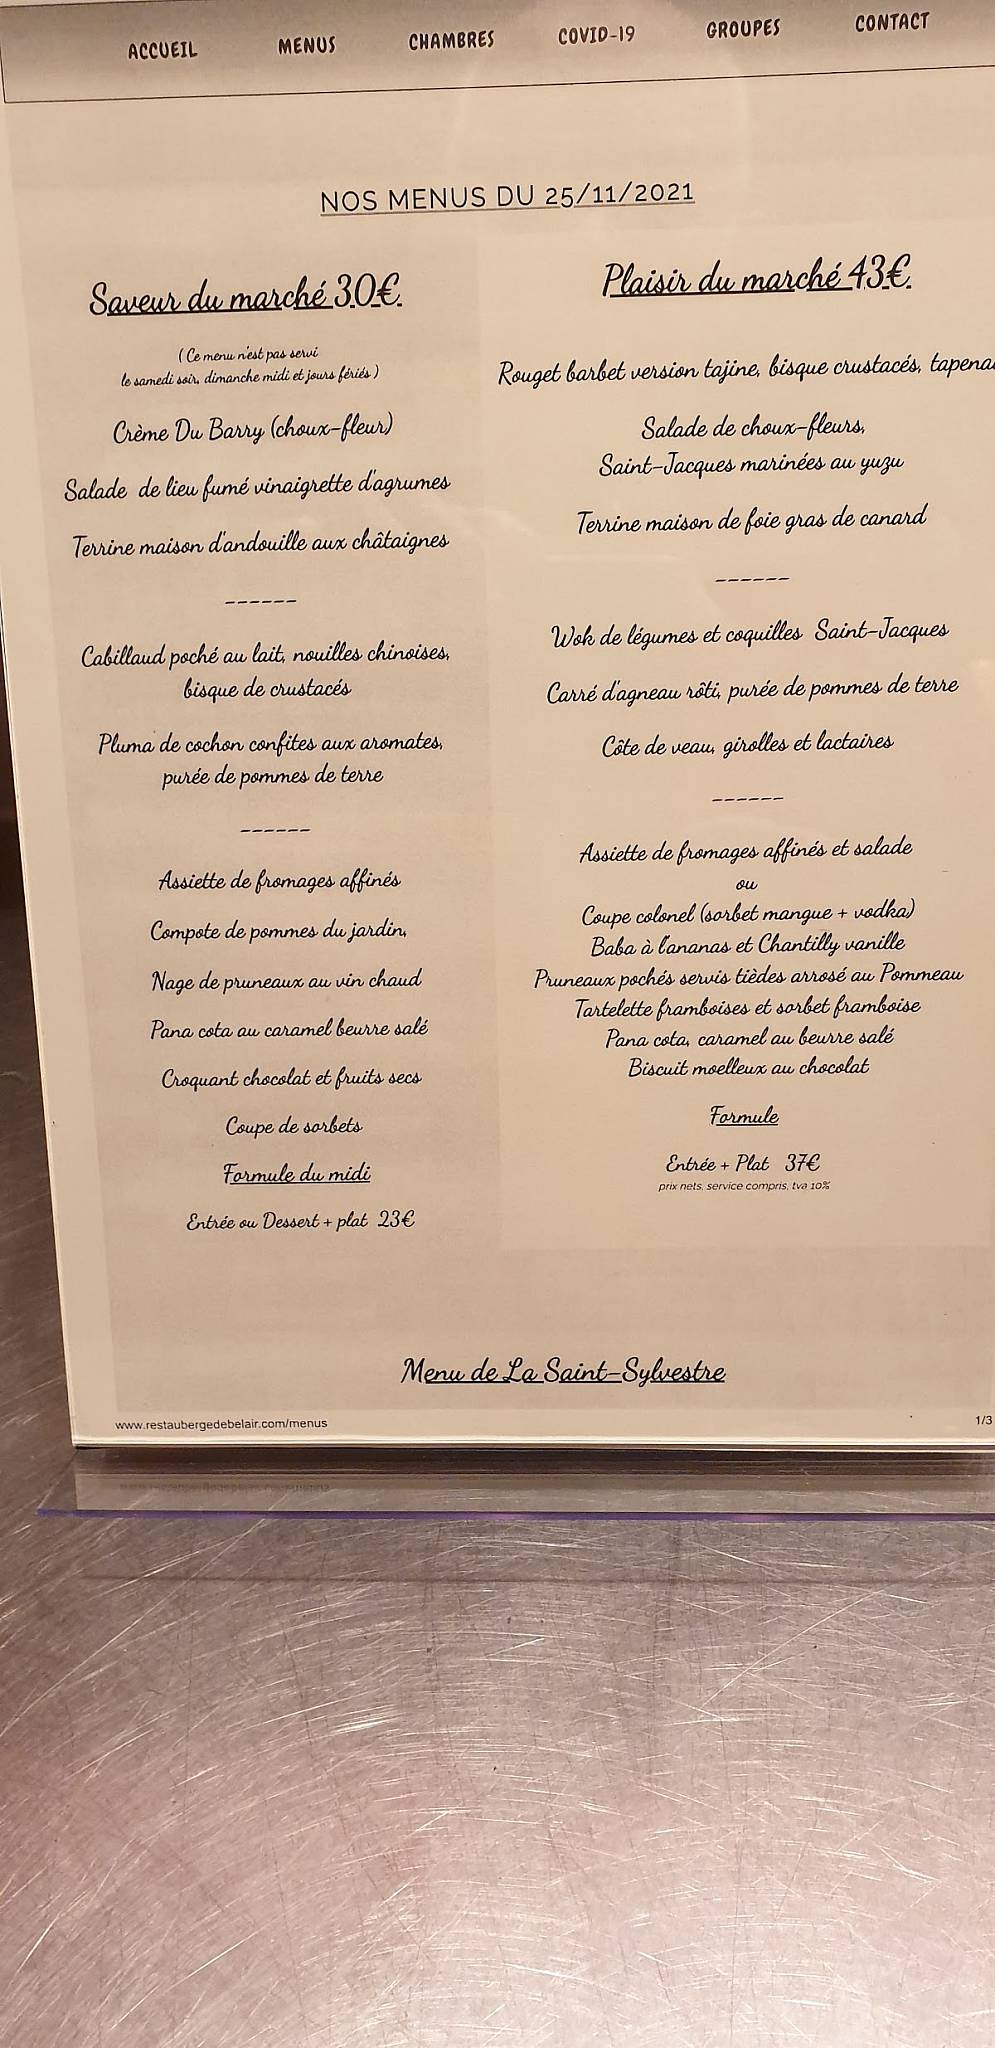 ACCUEIL MENUS CHAMBRES COVID-19 GROUPES CONTACT
NOS MENUS DU 25/11/2021
Saveur du marché 30€.
( Ce menu n'est pas servi
le samedi soir, dimanche midi et jours fériés )
Crème Du Barry (choux-fleur)
Salade de lieu fumé vinaigrette d'agrumes
Terrine maison d'andouille aux châtaignes
------
Cabillaud poché au lait, nouilles chinoises,
bisque de crustacés
Pluma de cochon confites aux aromates,
purée de pommes de terre
------
Assiette de fromages affinés
Compote de pommes du jardin,
Nage de pruneaux au vin chaud
Pana cota au caramel beurre salé
Croquant chocolat et fruits secs
Coupe de sorbets
Formule du midi
Entrée ou Dessert + plat 23€
Plaisir du marché 43€.
Rouget barbet version tajine, bisque crustacés,
Salade de choux-fleurs,
Saint-Jacques marinées au yuzu
Terrine maison de foie gras de canard
------
Wok de légumes et coquilles Saint-Jacques
Carré d'agneau rôti, purée de pommes de terre
Côte de veau, girolles et lactaires
------
Assiette de fromages affinés et salade
ou
Coupe colonel (sorbet mangue + vodka)
Baba à l'ananas et Chantilly vanille
Pruneaux pochés servis tièdes arrosé au Pommeau
Tartelette framboises et sorbet framboise
Pana cota, caramel au beurre salé
Biscuit moelleux au chocolat
Formule
Entrée + Plat 37€
prix nets, service compris, tva 10%
Menu de La Saint-Sylvestre
www.restaubergedebelair.com/menus 1/3